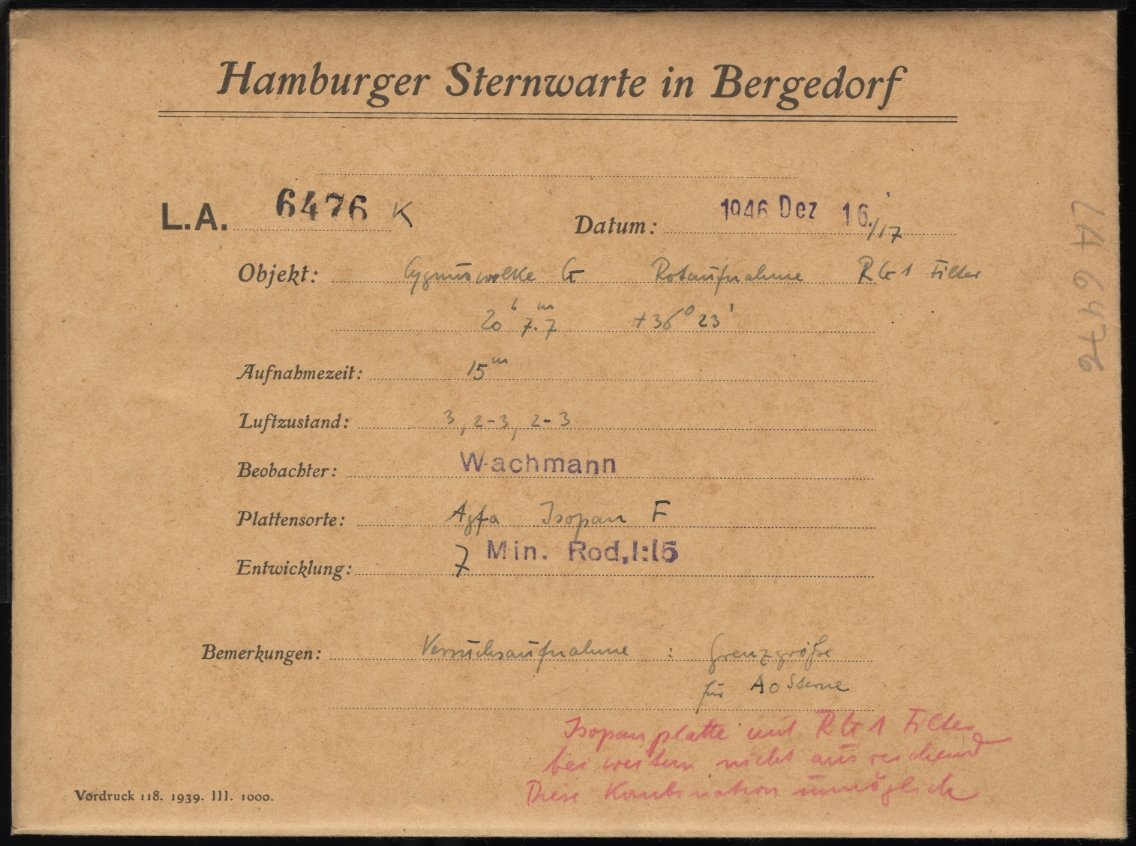 Hamburger Sternwarte in Bergedorf
L.A. 6476 K Datum: 1946 Dez 16./17
Objekt: Cygnuswolke G Rotaufnahme RG1 Filter
20h 7.m7 +36° 23'
Aufnahmezeit: 15m
Luftzustand: 3, 2-3, 2-3
Beobachter: Wachmann
Plattensorte: Agfa Isopan F
Entwicklung: 7 Min. Rod, 1:15
Bemerkungen: Versuchsaufnahme : Grenzgröße
für A0 Sterne
Isopanplatte mit RG1 Filter
bei weitem nicht ausreichend
Diese Kombination unmöglich
Vordruck 118. 1939. III. 1000.
LA 6476